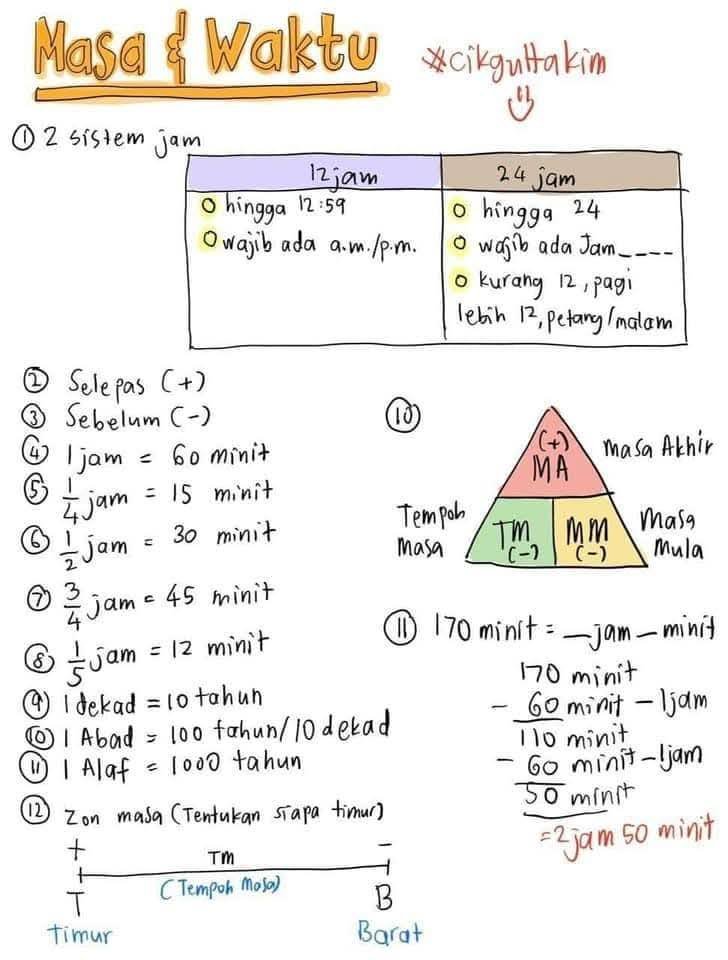 Masa & Waktu
#cikguHakim
① 2 sistem jam
12 jam
hingga 12:59
wajib ada a.m./p.m.
24 jam
hingga 24
wajib ada Jam____
kurang 12, pagi
lebih 12, petang/malam
② Selepas (+)
③ Sebelum (-)
④ 1 jam = 60 minit
⑤ 1/4 jam = 15 minit
⑥ 1/2 jam = 30 minit
⑦ 3/4 jam = 45 minit
⑧ 1/5 jam = 12 minit
⑨ 1 dekad = 10 tahun
⑩ 1 Abad = 100 tahun/10 dekad
⑪ 1 Alaf = 1000 tahun
⑫ Zon masa (Tentukan siapa timur)
+ -
TM
(Tempoh Masa)
T B
Timur Barat
⑩
(+)
MA
Masa Akhir
Tempoh
Masa
TM
(-)
MM
(-)
Masa
Mula
⑪ 170 minit = _jam_minit
170 minit
- 60 minit - 1jam
110 minit
- 60 minit - 1jam
50 minit
= 2 jam 50 minit